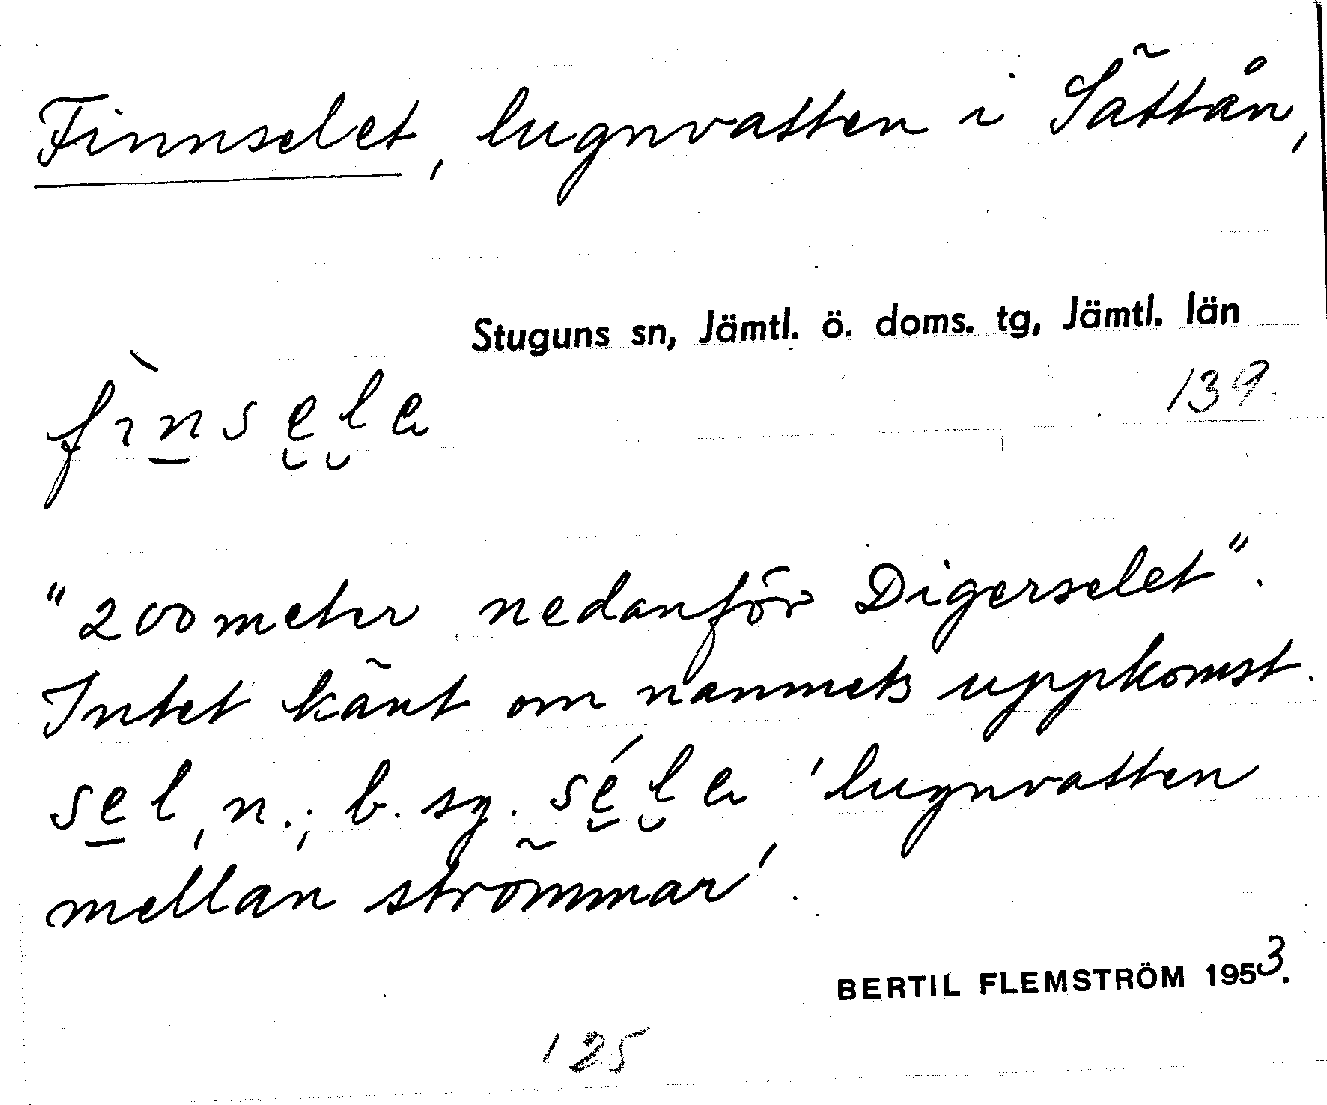 Finnselet, lugnvatten i Sättån,
Stuguns sn, Jämtl. ö. doms. tg, Jämtl. län
139
fìnsela
"200 meter nedanför Digerselet".
Intet känt om namnets uppkomst.
sel, n.; b. sg. séla 'lugnvatten
mellan strömmar'.
BERTIL FLEMSTRÖM 1953.
125